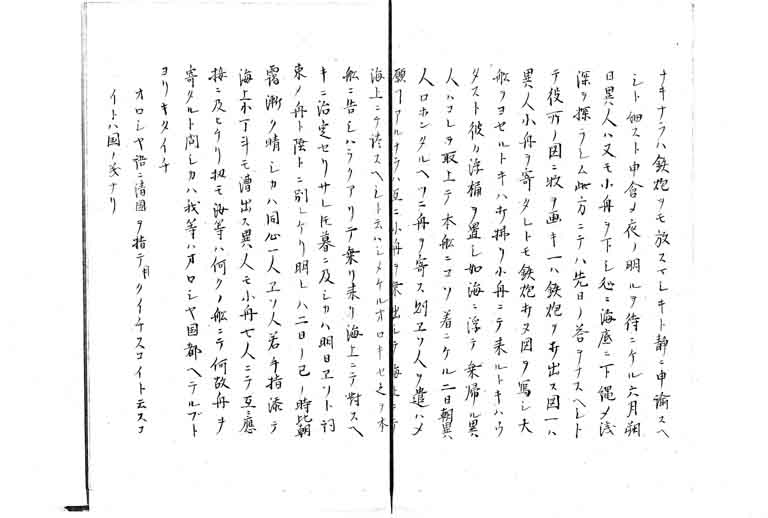 ナキナラハ鉄炮ヲモ放スマシキト静ニ申諭スヘ
シト細スト申含メ夜ノ明ルヲ待ニケル六月朔
日異人ハ又モ小舟ヲ下シ処ニ海底ニ下縄メ浅
深ヲ探ラシム此方ニテハ先日ノ答ヲナスヘシト
テ役所ノ図ニ牧ヲ画キ一ハ鉄炮ヲ打出ス図一ハ
異人小舟ヲ寄タレトモ鉄炮打タヌ図ヲ写シ大
船ヲヨセルトキハ打拂フ小舟ニテ来ルトキハウ
タスト彼ノ浮桶ヲ置シ如海ニ浮テ乗帰ル異
人ハコレヲ取上テ本船ニコソ着ニケル二日朝異
人ロホンタルヘツニ舟ヲ寄ス別ヱソ人ヲ遣ハメ
願フアルナラハ互ニ小舟ヲ乗出シテ海上ニテ
海上ニテ談スヘシト云ハシメケルオロキセ之ヲ本
舩ニ告ヨハラクアリテ乗リ来リ海上ニテ對スヘ
キニ治定セリサレ圧暮ニ及シカハ明日ヱソト詞
東ノ舟ト陰トニ別レケリ明レハ二日ノ己ノ時比朝
霧漸ク晴シカハ同心一人ヱソ人若干指添テ
海上小丁斗モ漕出ス異人モ小舟七人ニテ互ニ應
接ニ及ヒケリ扨モ海等ハ何クノ舩ニテ何故舟ヲ
寄タルト問シカハ我等ハオロシヤ国都ヘテルブト
ヨリキタイチ
オロシヤ語ニ清國ヲ指テクイチスコイト云スコ
イトハ国ノ義ナリ